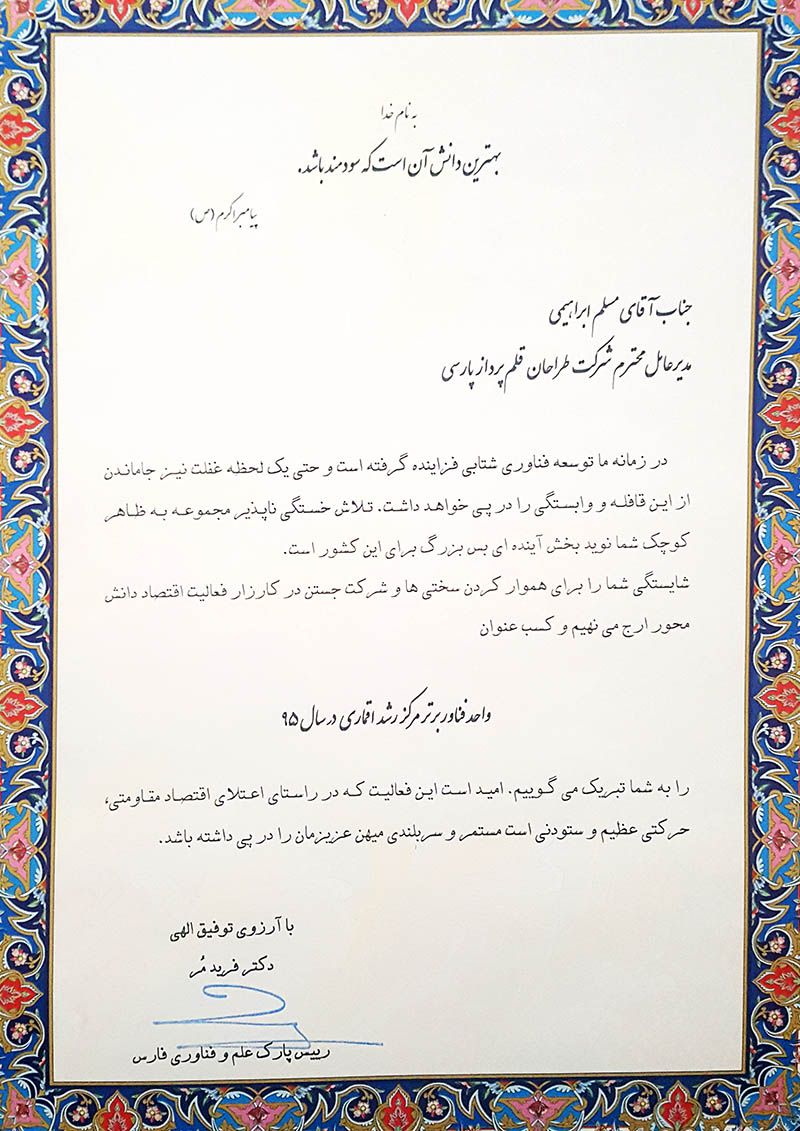 به نام خدا
بهترین دانش آن است که سودمند باشد.
پیامبر اکرم (ص)
جناب آقای مسلم ابراهیمی
مدیر عامل محترم شرکت طراحان قلم پرداز پارسی
در زمانه ما توسعه فناوری شتابی فزاینده گرفته است و حتی یک لحظه غفلت نیز جاماندن
از این قافله و وابستگی را در پی خواهد داشت. تلاش خستگی ناپذیر مجموعه به ظاهر
کوچک شما نوید بخش آینده ای بس بزرگ برای این کشور است.
شایستگی شما را برای هموار کردن سختی ها و شرکت جستن در کارزار فعالیت اقتصاد دانش
محور ارج می نهیم و کسب عنوان
واحد فناور برتر مرکز رشد اقماری در سال ۹۵
را به شما تبریک می گوییم. امید است این فعالیت که در راستای اعتلای اقتصاد مقاومتی،
حرکتی عظیم و ستودنی است مستمر و سربلندی میهن عزیزمان را در پی داشته باشد.
با آرزوی توفیق الهی
دکتر فرید مُر
رییس پارک علم و فناوری فارس